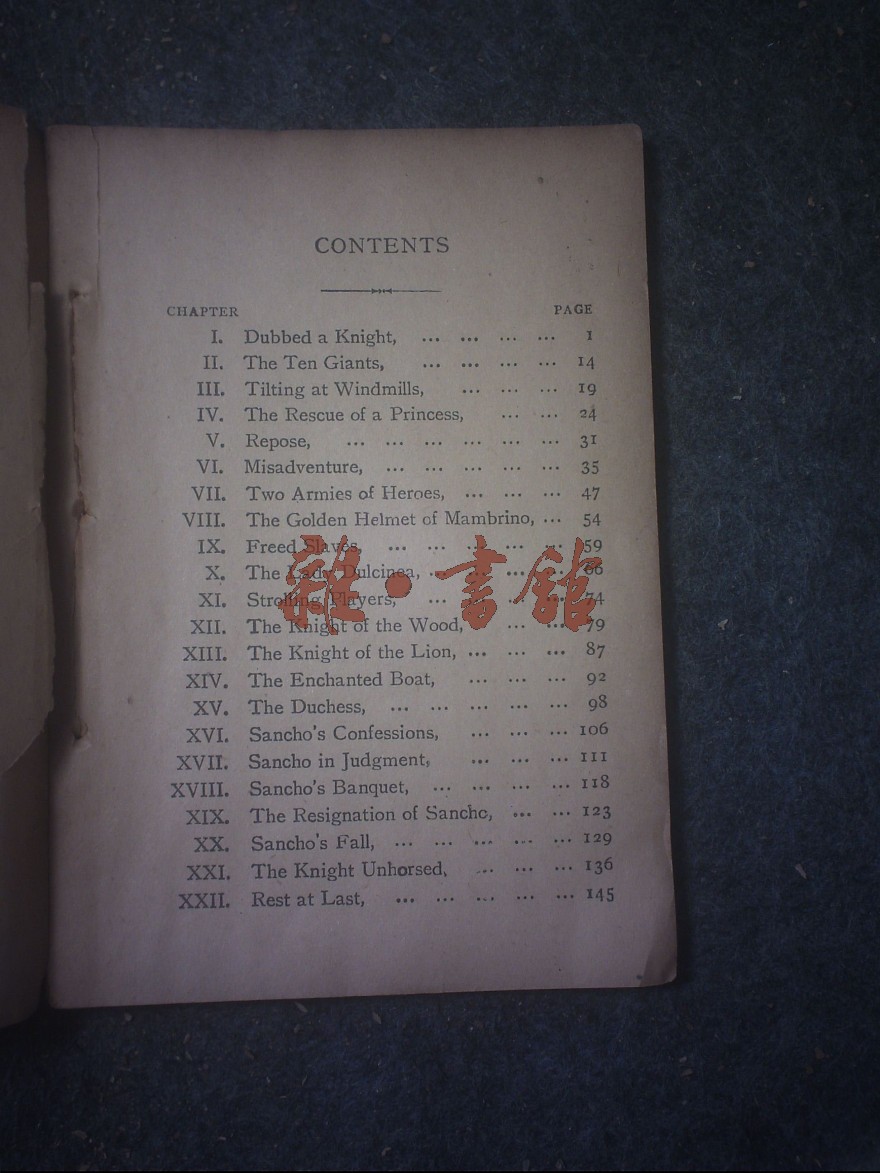 CONTENTS
CHAPTER PAGE
I. Dubbed a Knight, ... ... ... ... 1
II. The Ten Giants, ... ... ... ... 14
III. Tilting at Windmills, ... ... ... 19
IV. The Rescue of a Princess, ... ... 24
V. Repose, ... ... ... ... ... ... 31
VI. Misadventure, ... ... ... ... ... 35
VII. Two Armies of Heroes, ... ... ... 47
VIII. The Golden Helmet of Mambrino, ... 54
IX. Freed Slaves, ... ... ... ... ... 59
X. The Lady Dulcinea, ... ... ... ... 66
XI. Strolling Players, ... ... ... ... 74
雜·書館
XII. The Knight of the Wood, ... ... 79
XIII. The Knight of the Lion, ... ... ... 87
XIV. The Enchanted Boat, ... ... ... 92
XV. The Duchess, ... ... ... ... ... 98
XVI. Sancho's Confessions, ... ... ... 106
XVII. Sancho in Judgment, ... ... ... 111
XVIII. Sancho's Banquet, ... ... ... ... 118
XIX. The Resignation of Sancho, ... ... 123
XX. Sancho's Fall, ... ... ... ... ... 129
XXI. The Knight Unhorsed, ... ... ... 136
XXII. Rest at Last, ... ... ... ... ... 145